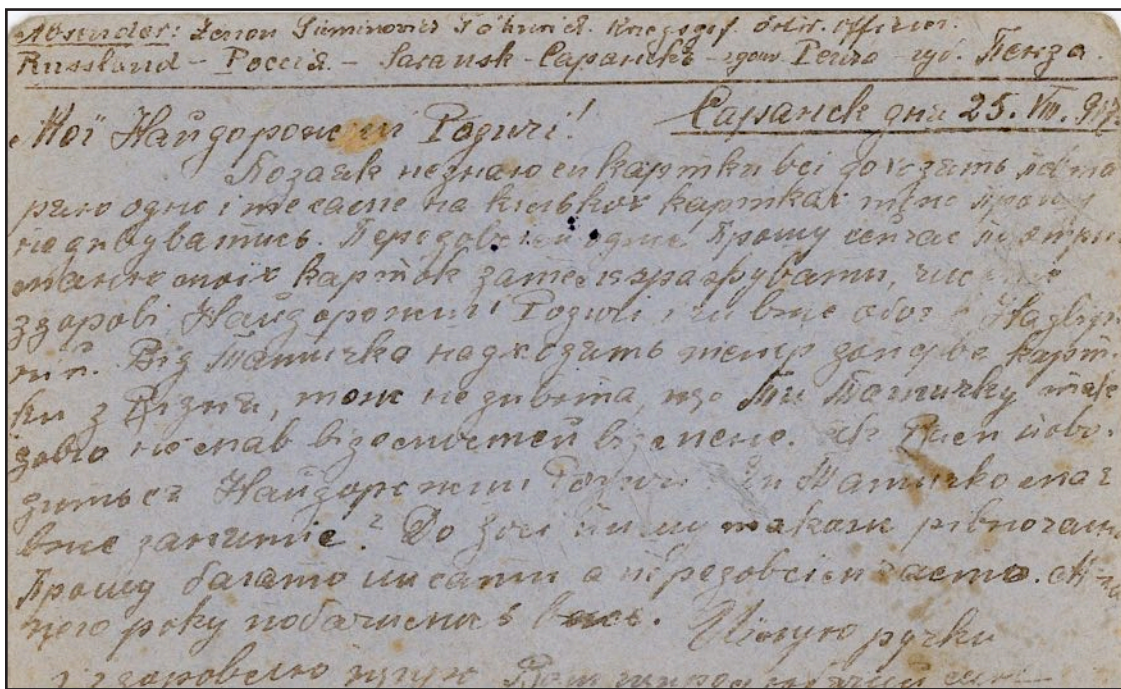 Absender: Zenon Kriegsgef. östr. Offizier.
Russland - Россія - Saransk - Саранскъ - губ. Пенза.
Саранск дня 25. VIII. 917
Мої Найдорожші Родичі!
Позаяк не знаю чи картки всі доходять
одно і те саме на кількох картках тож прошу
не дивуватись. Передовсїм одже прошу сейчас по
моїх карток зателєґрафувати, чи
здорові Найдорожші Родичі і чи вже
Від Татичка надходять тепер доперва карт-
ки з Відня, тож не дивота, що Ти Татичку так
довго не мав відомостей від мене. Як Вам пово-
дить ся Найдорожші Родичі? Чи Татичко має
вже занятіє? До Зосі пишу також рівночасно
Прошу багато писати а передовсїм часто.
цего року побачимо ся Цїлую ручки
і здоровлю Вам